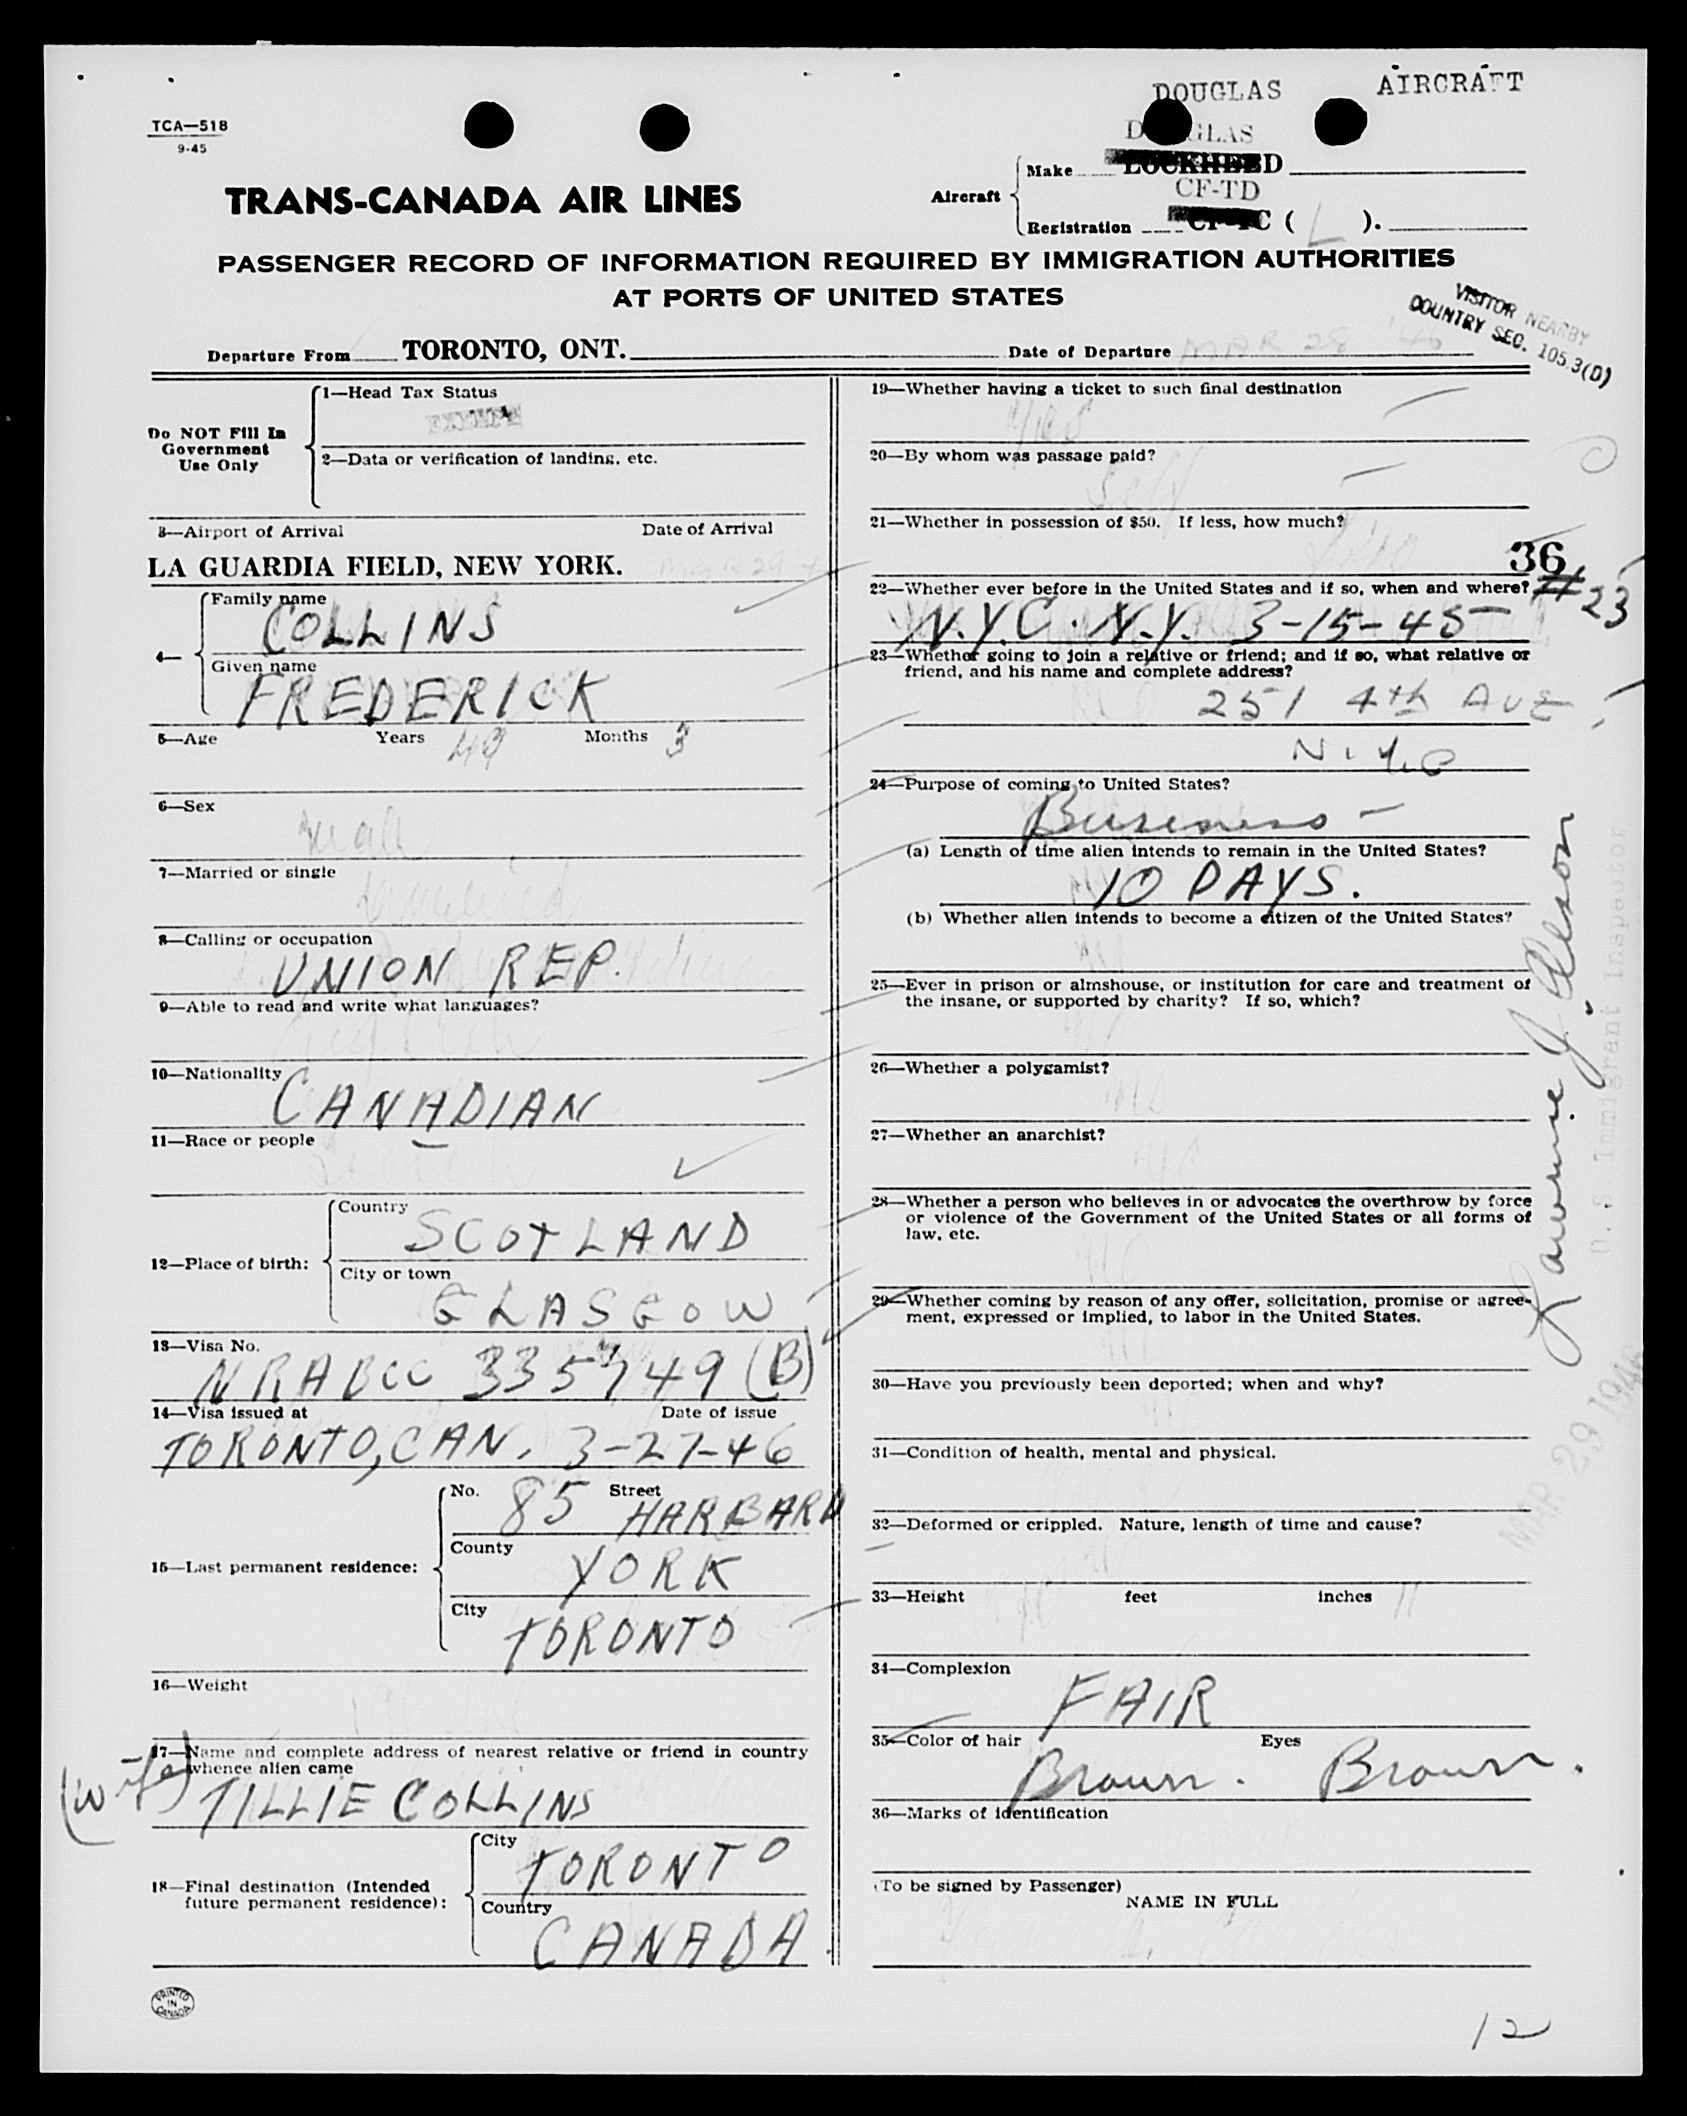 DOUGLAS AIRCRAFT
TCA—518
9-45
Make LOCKHEED
CF-TD
TRANS-CANADA AIR LINES
Aircraft
Registration CF-TC ( L ).
PASSENGER RECORD OF INFORMATION REQUIRED BY IMMIGRATION AUTHORITIES
AT PORTS OF UNITED STATES
VISITOR NEARBY
COUNTRY SEC. 105.3(D)
Departure From TORONTO, ONT. Date of Departure MAR 28 '46
1—Head Tax Status
Do NOT Fill In
Government
Use Only
2—Data or verification of landing, etc.
3—Airport of Arrival Date of Arrival
LA GUARDIA FIELD, NEW YORK.
4—
Family name
COLLINS
Given name
FREDERICK
5—Age Years 49 Months 3
6—Sex
Male
7—Married or single
Married
8—Calling or occupation
UNION REP.
9—Able to read and write what languages?
English
10—Nationality
CANADIAN
11—Race or people
12—Place of birth:
Country
SCOTLAND
City or town
GLASGOW
13—Visa No.
NRABCC 335749 (B)
14—Visa issued at Date of issue
TORONTO, CAN. 3-27-46
15—Last permanent residence:
No. 85 Street HARBARD
County
YORK
City
TORONTO
16—Weight
17—Name and complete address of nearest relative or friend in country
whence alien came
(wife) TILLIE COLLINS
18—Final destination (Intended
future permanent residence):
City
TORONTO
Country
CANADA
PRINTED
IN
CANADA
19—Whether having a ticket to such final destination
yes
20—By whom was passage paid?
Self
21—Whether in possession of $50. If less, how much?
36
22—Whether ever before in the United States and if so, when and where?
# 23
N.Y.C. N.Y. 3-15-45
23—Whether going to join a relative or friend; and if so, what relative or
friend, and his name and complete address?
251 4th AVE
N.Y.C
24—Purpose of coming to United States?
Business
(a) Length of time alien intends to remain in the United States?
10 DAYS.
(b) Whether alien intends to become a citizen of the United States?
25—Ever in prison or almshouse, or institution for care and treatment of
the insane, or supported by charity? If so, which?
26—Whether a polygamist?
No
27—Whether an anarchist?
No
28—Whether a person who believes in or advocates the overthrow by force
or violence of the Government of the United States or all forms of
law, etc.
No
29—Whether coming by reason of any offer, solicitation, promise or agree-
ment, expressed or implied, to labor in the United States.
30—Have you previously been deported; when and why?
31—Condition of health, mental and physical.
32—Deformed or crippled. Nature, length of time and cause?
33—Height feet inches 11
34—Complexion
FAIR
35—Color of hair Eyes
Brown. Brown.
36—Marks of identification
(To be signed by Passenger)
NAME IN FULL
U.S. Immigrant Inspector
MAR 29 1946
12